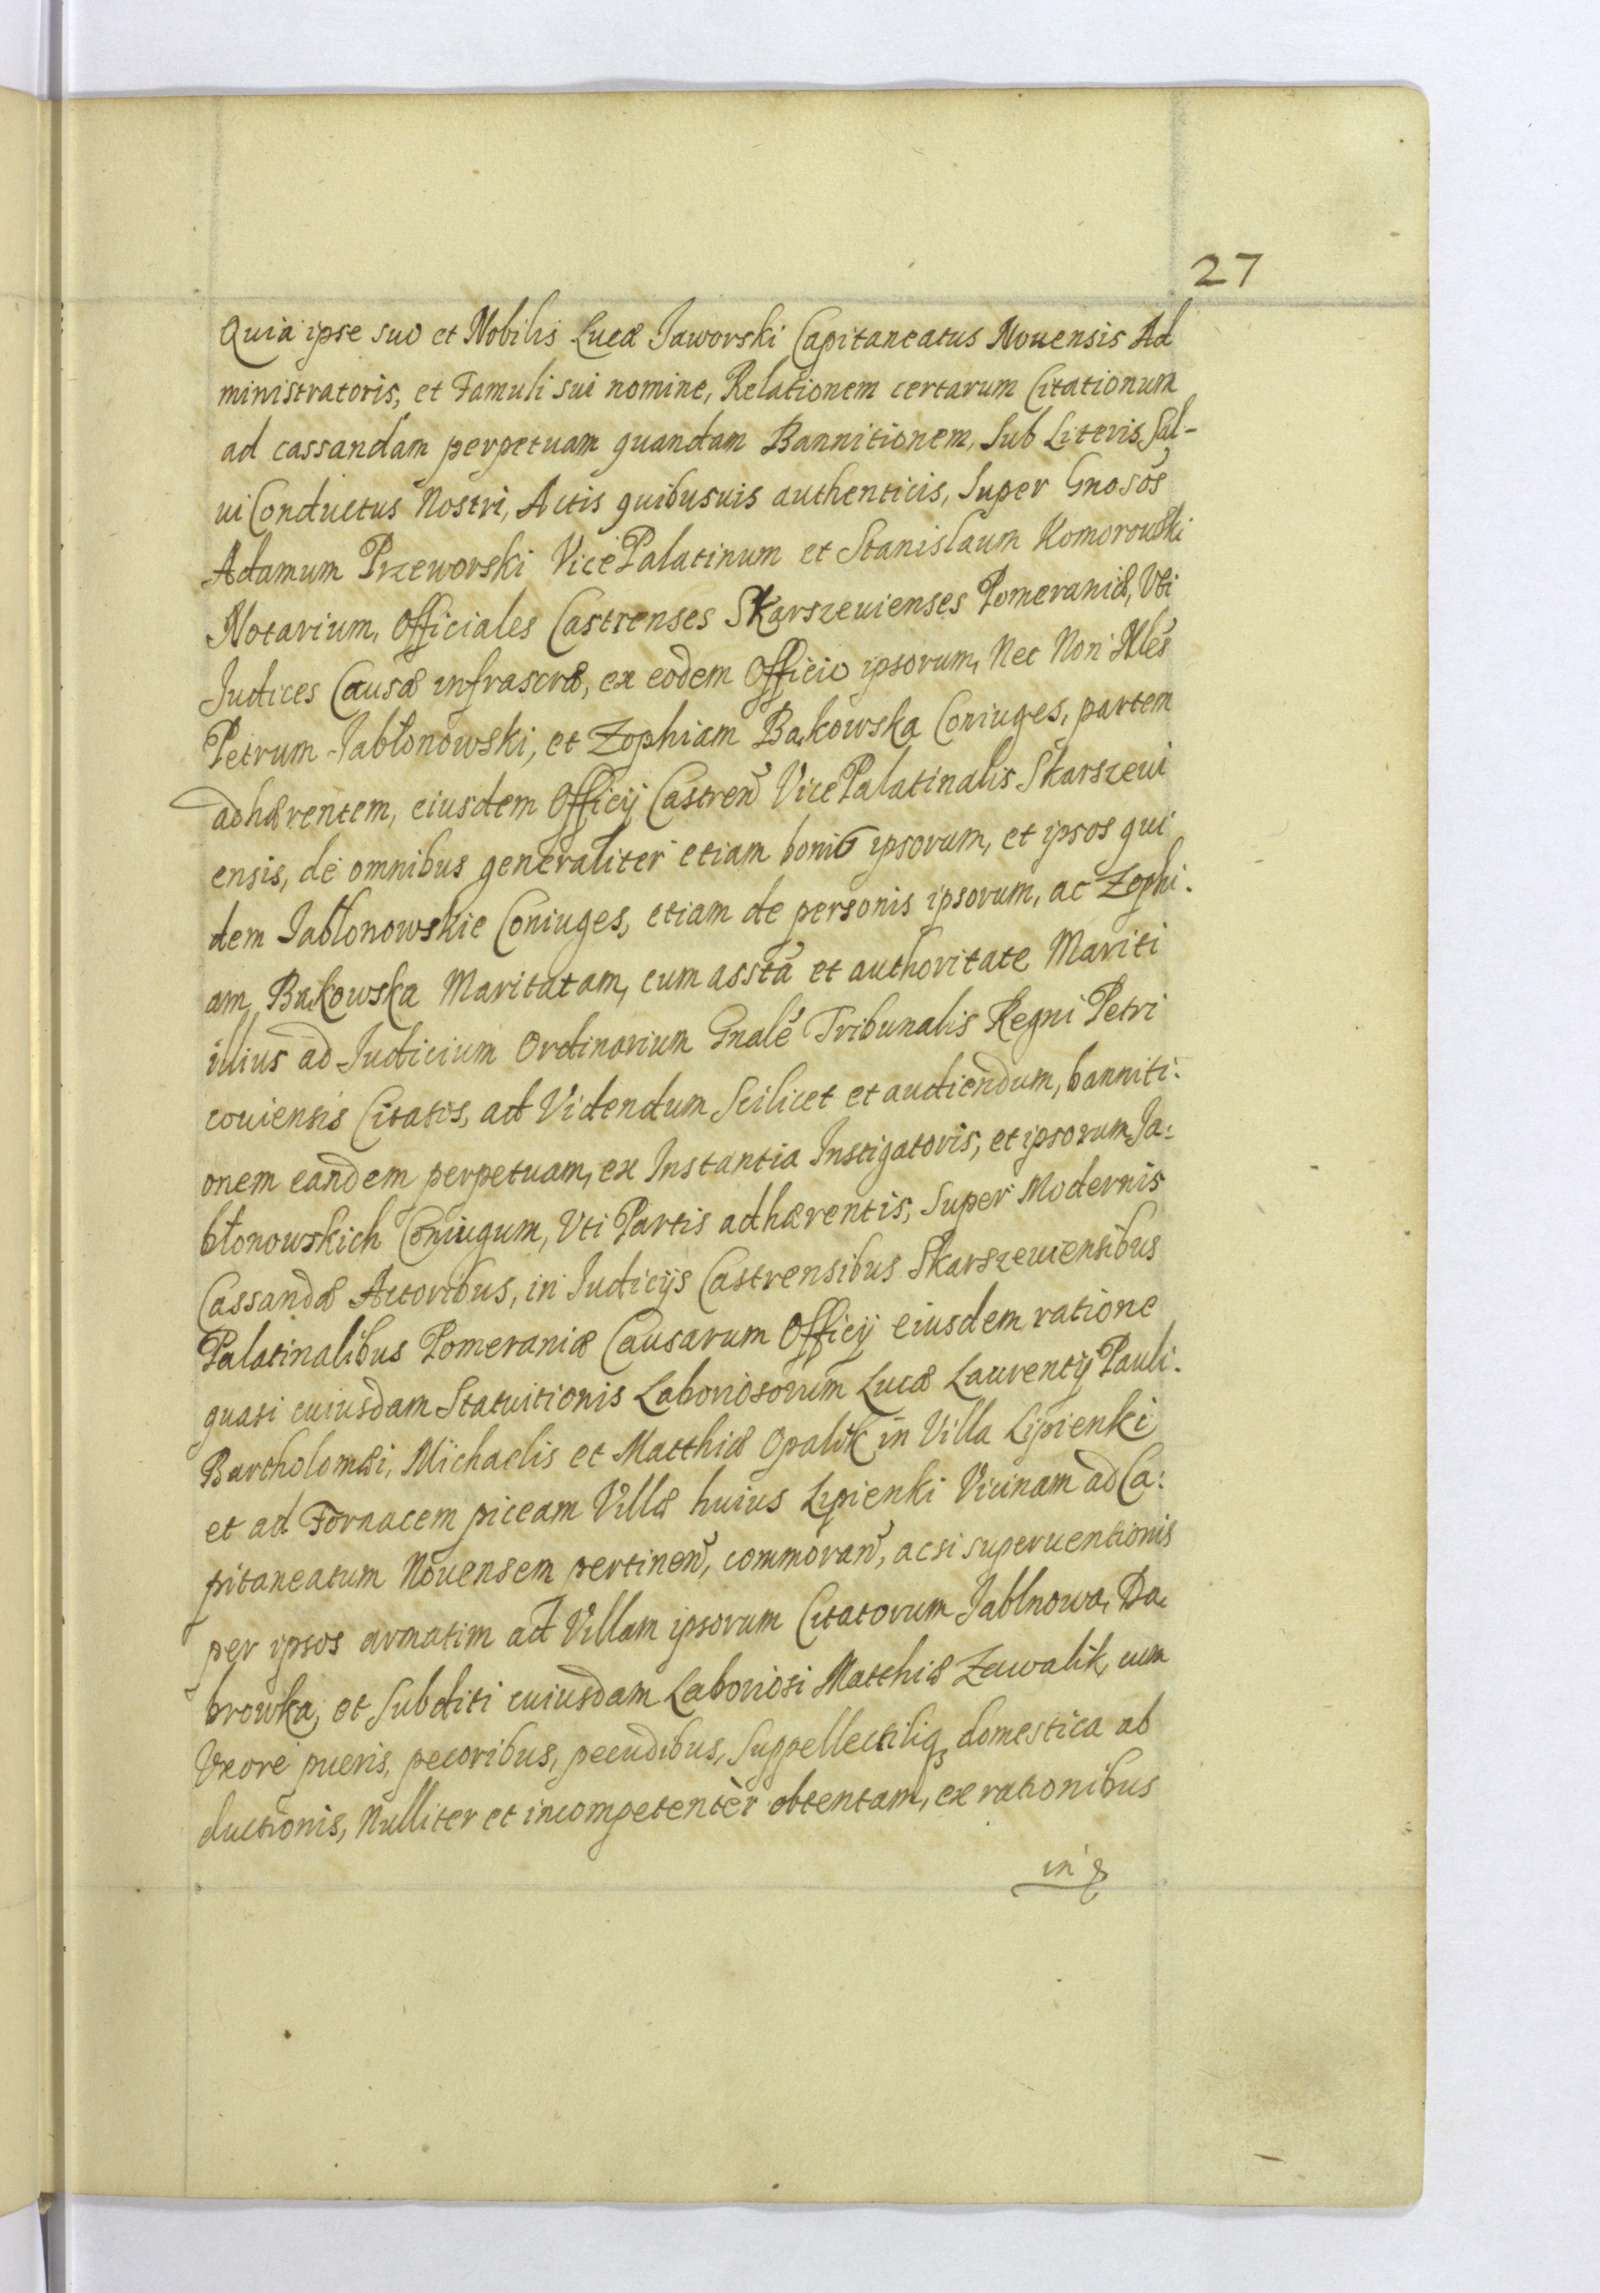 27
Quia ipse suo et Nobilis Lucæ Jaworski Capitaneatus Nouensis Ad
ministratoris, et Famuli sui nomine, Relationem certarum Citationum
ad cassandam perpetuam quandam Bannitionem, Sub Literis Sal-
ui Conductus Nostri, Actis quibusuis authenticis, Super Gnosos
Adamum Przeworski VicePalatinum et Stanislaum Komorowski
Notarium, Officiales Castrenses Skarszeuienses Pomeraniæ, Vti
Judices Causæ infrascræ, ex eodem Officio ipsorum, Nec Non Nles
Petrum Jabłonowski, et Zophiam Bąkowska Coniuges, partem
adhærentem, eiusdem Officij Castren VicePalatinalis Skarszeui
ensis, de omnibus generaliter etiam bonis ipsorum, et ipsos qui
dem Jabłonowskie Coniuges, etiam de personis ipsorum, ac Zophi.
am, Bąkowska Maritatam, cum assta et authoritate Mariti
illius ad Judicium Ordinarium Gnale Tribunalis Regni Petri
couiensis Citatos, ad Videndum Scilicet et audiendum, banniti:
onem eandem perpetuam, ex Instantia Instigatoris, et ipsorum Ja:
błonowskich Coniugum, Vti Partis adhærentis, Super Modernis
Cassandæ Actoribus, in Judicijs Castrensibus Skarszeuiensibus
Palatinalibus Pomeraniæ Causarum Officij eiusdem ratione
quasi cuiusdam Statuitionis Laboriosorum Lucæ Laurentij Pauli.
Bartholomæi, Michaelis et Matthiæ Opalik in Villa Lipienki
et ad Fornacem piceam Villæ huius Lipienki Vicinam ad Ca:
pitaneatum Nouensem pertinen, commoran, acsi superuentionis
per ipsos armatim ad Villam ipsorum Citatorum Jablnowa, Dą
browka, et Subditi cuiusdam Laboriosi Matthiæ Zawalik, cum
Vxore pueris, pecoribus, pecudibus, Suppellectiliq3 domestica ab
ductionis, Nulliter et incompetentèr obtentam, ex rationibus
in